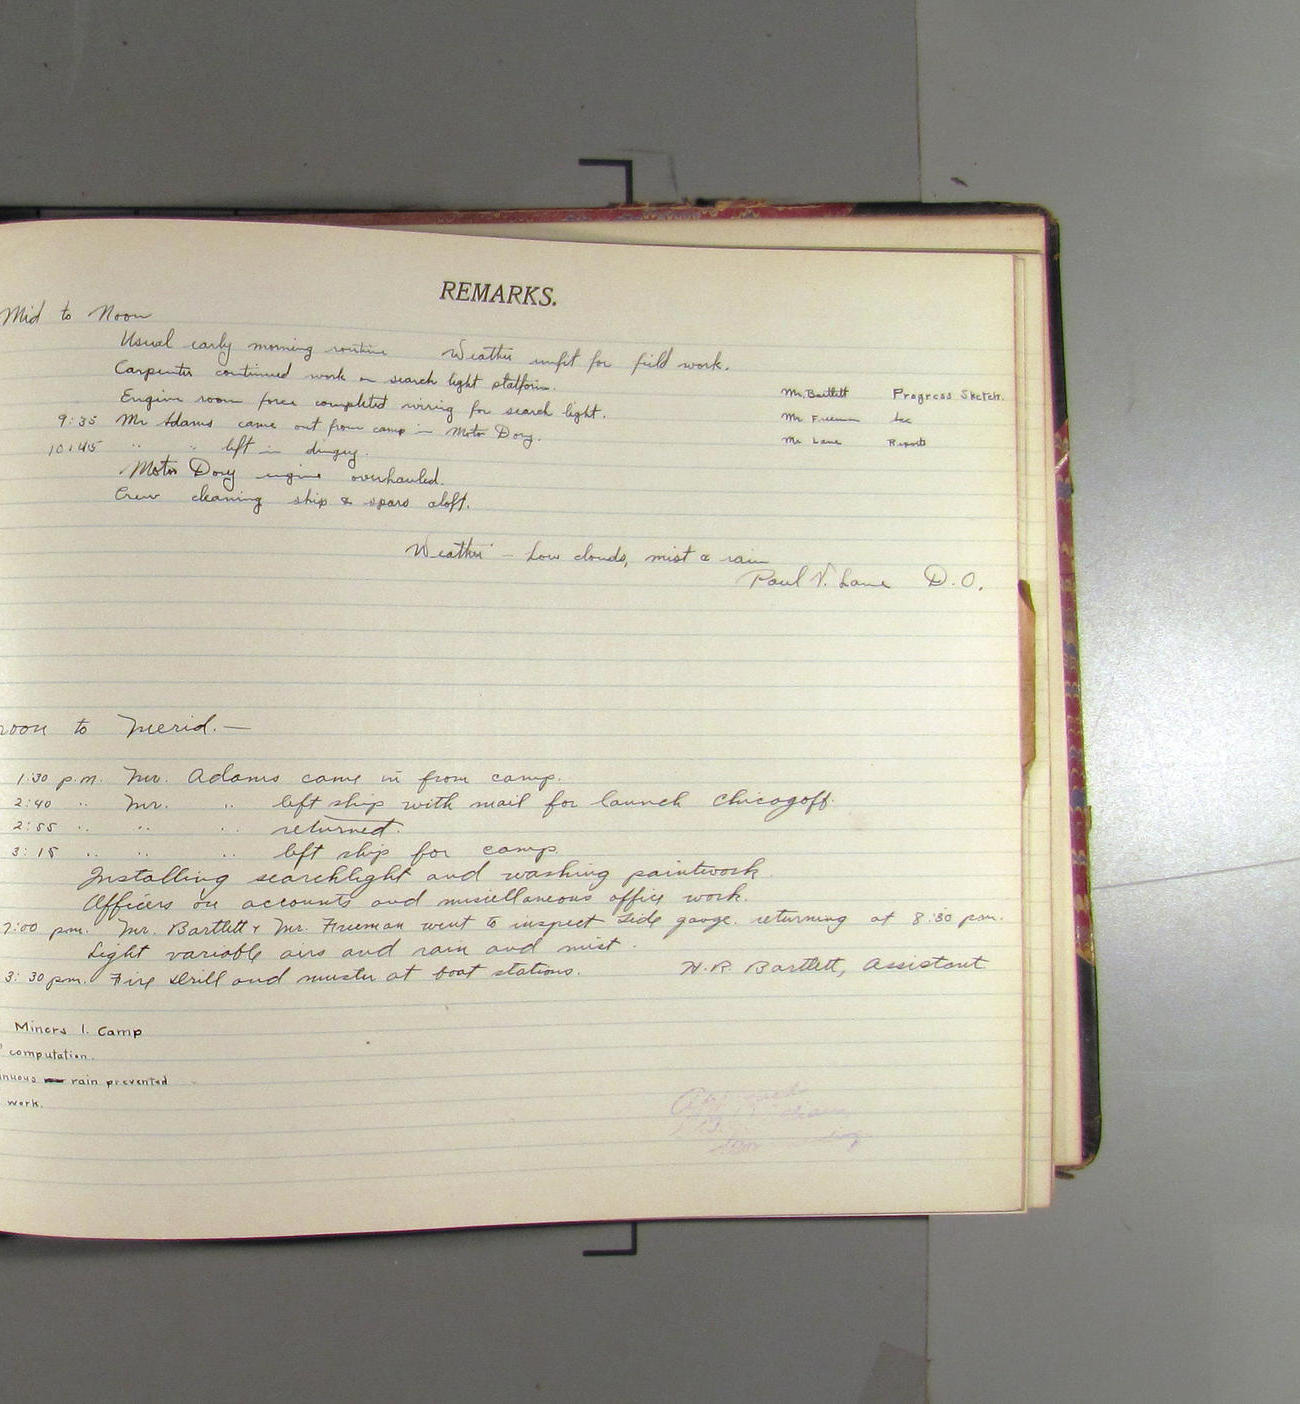 REMARKS.
Mid to Noon
Usual early morning routine Weather unfit for field work.
Carpenter continued work on search light platform.
Engine room force completed wiring for search light.
Mr. Bartlett Progress Sketch.
9:35 Mr Adams came out from camp in Motor Dory.
Mr Freeman
10:45 " " left in dingey.
Mr Lane Reports
Motor Dory engine overhauled.
Crew cleaning ship & spars aloft.
Weather - Low clouds, mist & rain
Paul V. Lane D.O.
noon to merid. —
1:30 p.m. Mr. Adams came in from camp.
2:40 " Mr. " left ship with mail for launch Chicagoff.
2:55 " " " returned.
3:15 " " " left ship for camp.
Installing searchlight and washing paintwork.
Officers on accounts and miscellaneous office work.
7:00 pm. Mr. Bartlett & Mr. Freeman went to inspect tide gauge returning at 8:30 pm.
Light variable airs and rain and mist.
3:30 pm. Fire Drill and muster at boat stations.
H.R. Bartlett, Assistant
Miners I. Camp
computation.
inuous rain prevented
work.